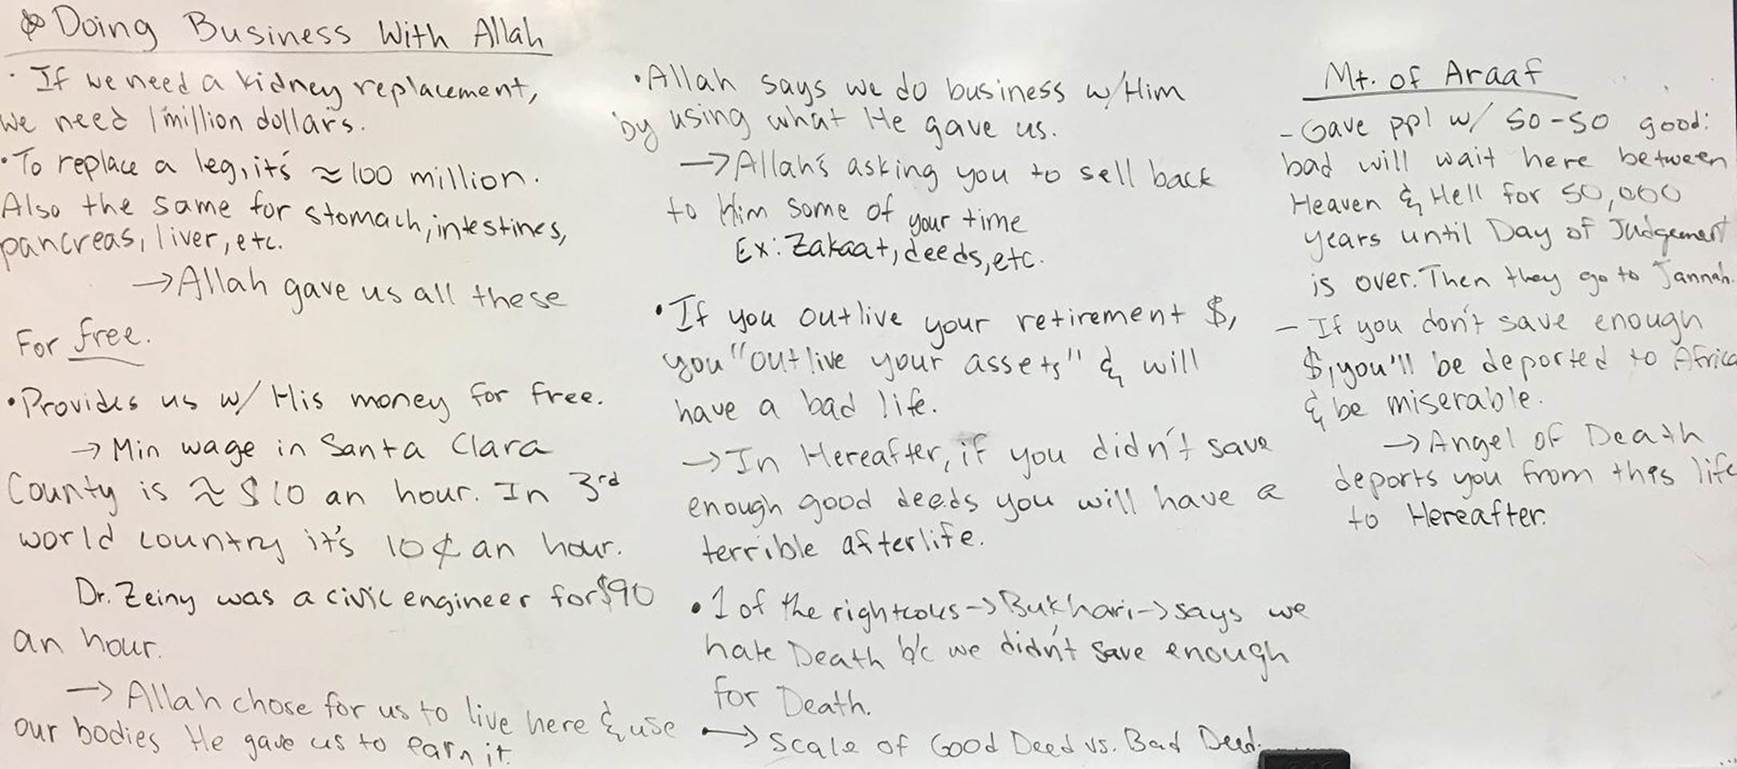 Doing Business With Allah
· If we need a kidney replacement,
we need 1 million dollars.
• To replace a leg, it's ≈ 100 million.
Also the same for stomach, intestines,
pancreas, liver, etc.
→ Allah gave us all these
for free.
• Provides us w/ His money for free.
→ Min wage in Santa Clara
County is ≈ $10 an hour. In 3rd
world country it's 10¢ an hour.
Dr. Zeiny was a civic engineer for $90
an hour.
→ Allah chose for us to live here & use
our bodies He gave us to earn it.
• Allah says we do business w/ Him
by using what He gave us.
→ Allah's asking you to sell back
to Him some of your time
Ex: Zakaat, deeds, etc.
• If you outlive your retirement $,
you "outlive your assets" & will
have a bad life.
→ In Hereafter, if you didn't save
enough good deeds you will have a
terrible afterlife.
• 1 of the righteous → Bukhari → says we
hate Death b/c we didn't save enough
for Death.
→ Scale of Good Deed vs. Bad Deed.
Mt. of Araaf
- Gave ppl w/ 50-50 good:
bad will wait here between
Heaven & Hell for 50,000
years until Day of Judgement
is over. Then they go to Jannah.
- If you don't save enough
$, you'll be deported to Africa
& be miserable.
→ Angel of Death
deports you from this life
to Hereafter.